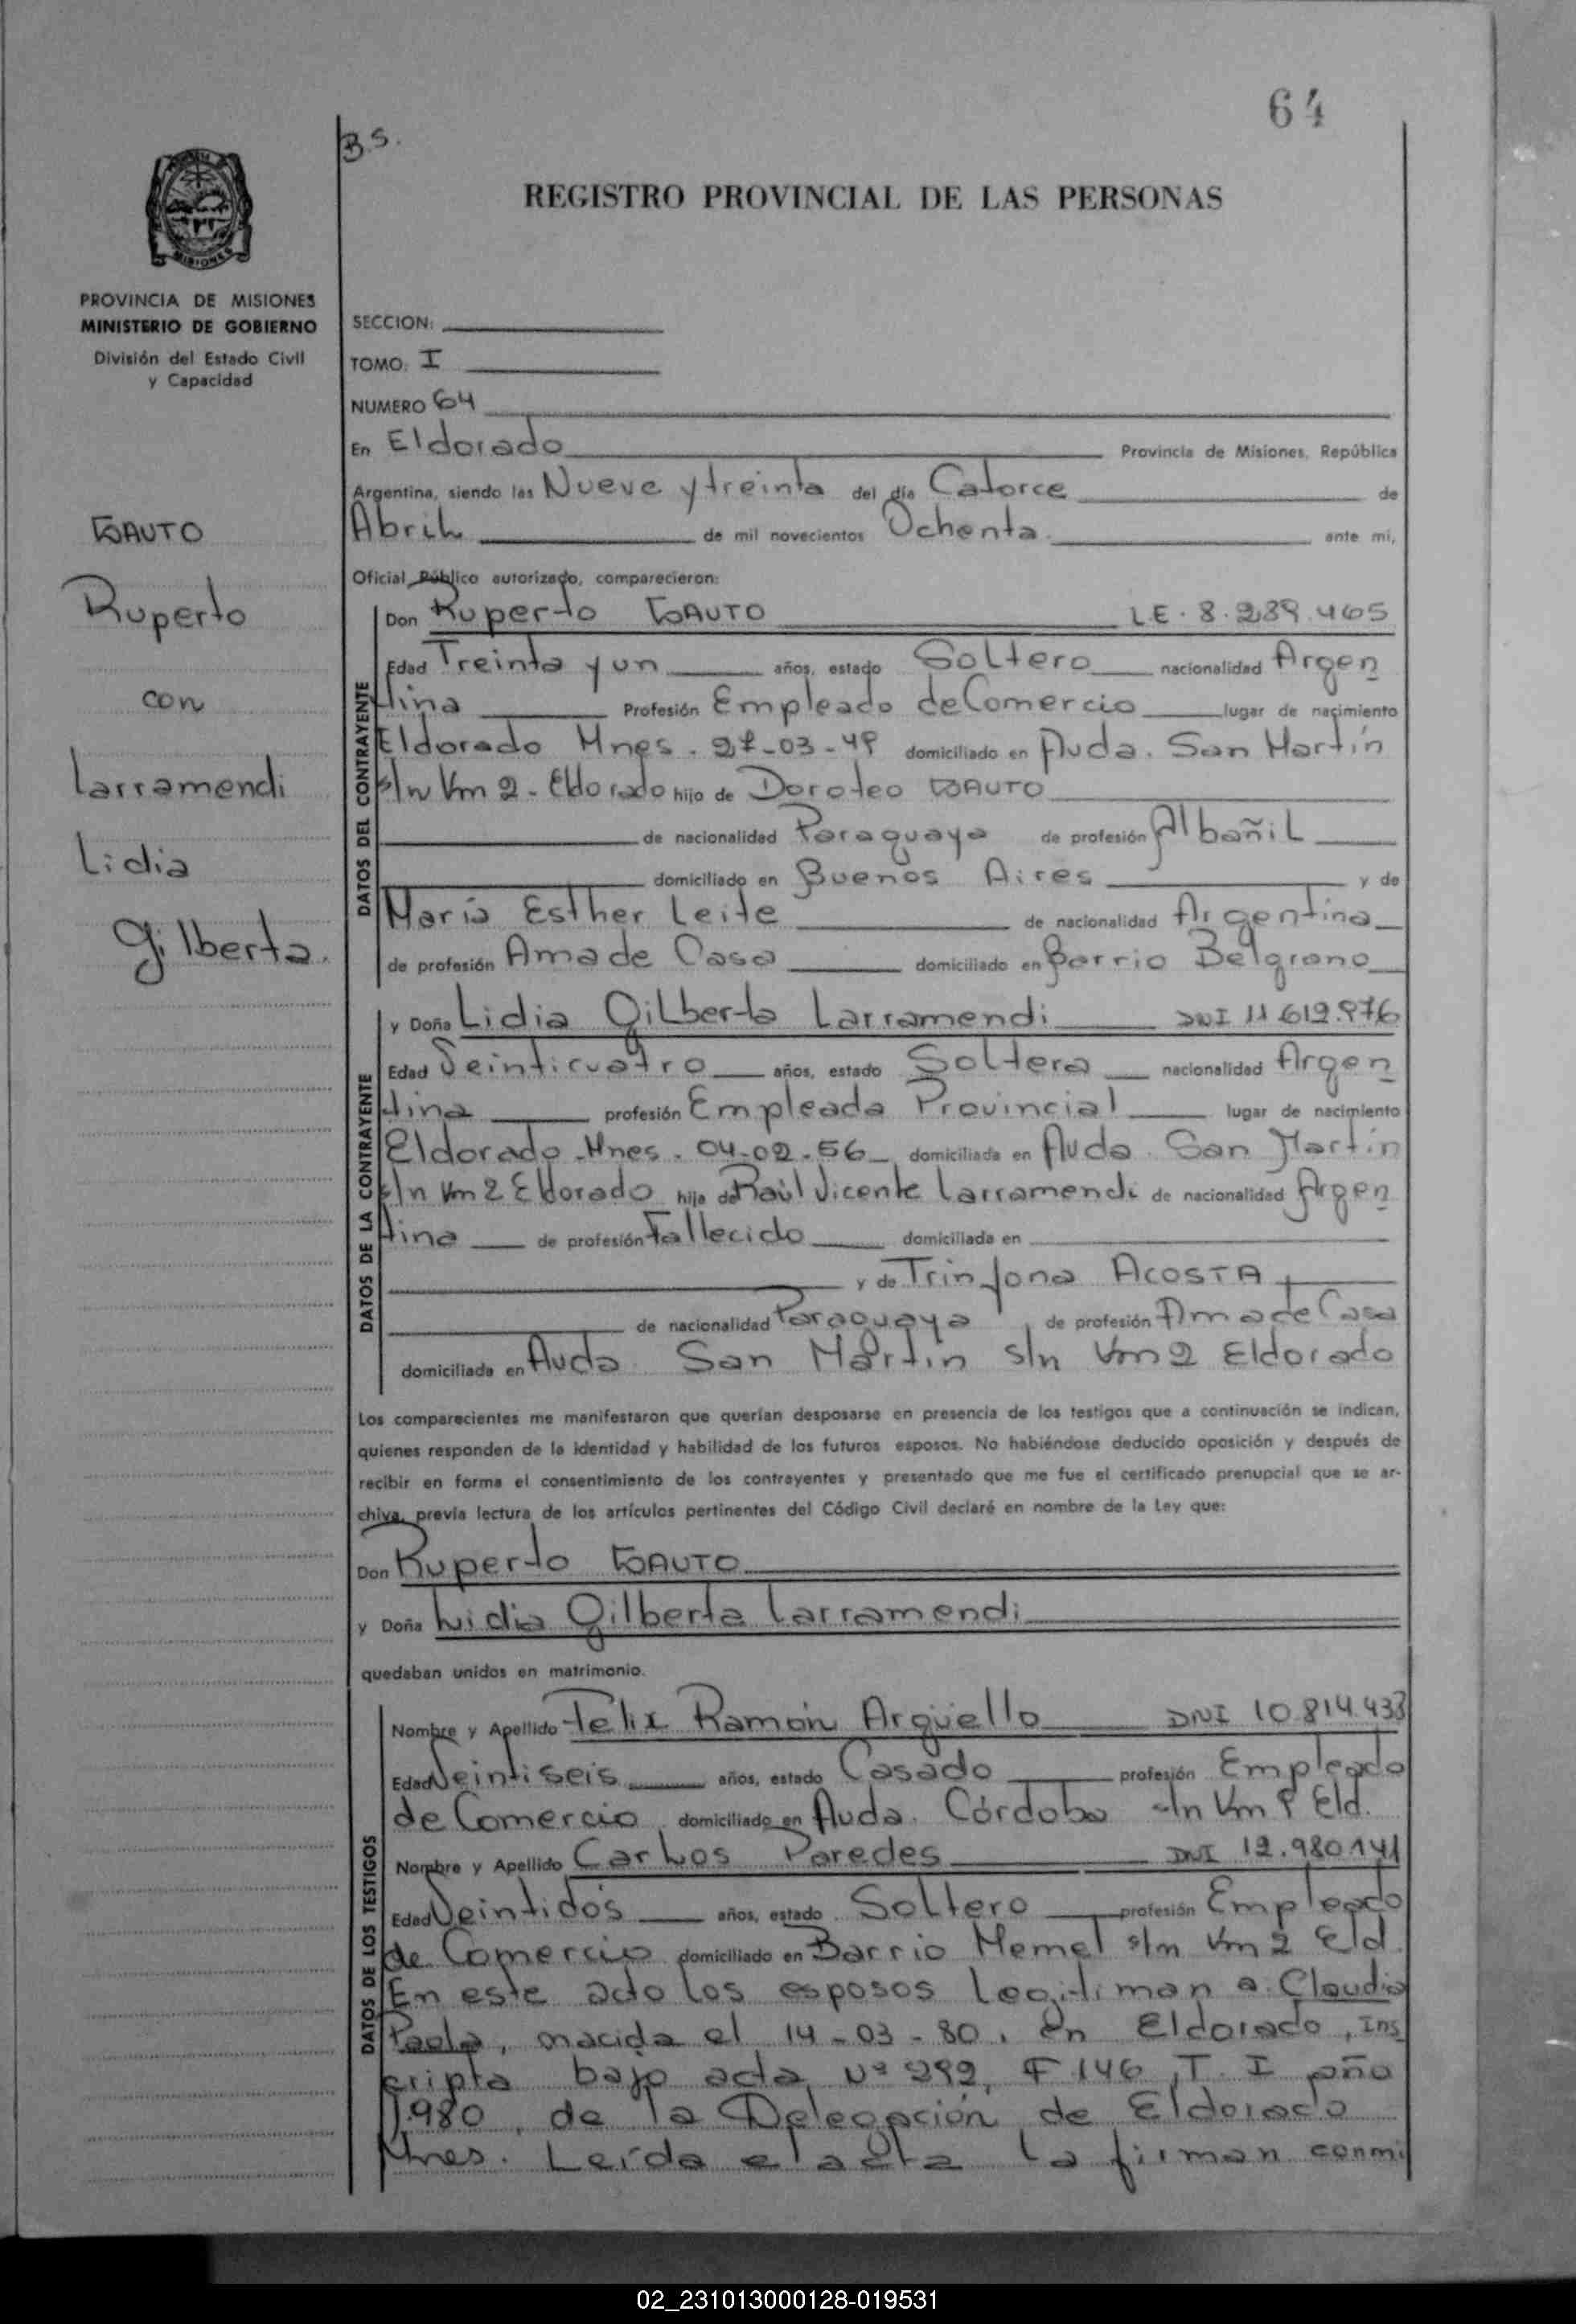 64
B.S.
REGISTRO PROVINCIAL DE LAS PERSONAS
MISIONES
PROVINCIA DE MISIONES
MINISTERIO DE GOBIERNO
División del Estado Civil
y Capacidad
SECCION:
TOMO: I
NUMERO 64
En Eldorado Provincia de Misiones, República
Argentina, siendo las Nueve y treinta del día Catorce de
Abril de mil novecientos Ochenta ante mi,
Oficial Público autorizado, comparecieron:
BAUTO
Ruperto
con
Larramendi
Lidia
Gilberta.
DATOS DEL CONTRAYENTE
Don Ruperto BAUTO L.E. 8.289.465
Edad Treinta y un años, estado Soltero nacionalidad Argen
tina Profesión Empleado de Comercio lugar de nacimiento
Eldorado Mnes. 27-03-49 domiciliado en Avda. San Martín
s/n Km 2 - Eldorado hijo de Doroteo BAUTO
de nacionalidad Paraguaya de profesión Albañil
domiciliado en Buenos Aires y de
María Esther Leite de nacionalidad Argentina
de profesión Ama de Casa domiciliado en Barrio Belgrano
DATOS DE LA CONTRAYENTE
y Doña Lidia Gilberta Larramendi DNI 11.619.976
Edad Veinticuatro años, estado Soltera nacionalidad Argen
tina profesión Empleada Provincial lugar de nacimiento
Eldorado - Mnes. 04-02-56 domiciliada en Avda. San Martín
s/n Km 2 Eldorado hija de Raúl Vicente Larramendi de nacionalidad Argen
tina de profesión Fallecido domiciliada en
y de Trinfona ACOSTA
de nacionalidad Paraguaya de profesión Ama de Casa
domiciliada en Avda. San Martín s/n Km 2 Eldorado
Los comparecientes me manifestaron que querían desposarse en presencia de los testigos que a continuación se indican,
quienes responden de la identidad y habilidad de los futuros esposos. No habiéndose deducido oposición y después de
recibir en forma el consentimiento de los contrayentes y presentado que me fue el certificado prenupcial que se ar-
chiva, previa lectura de los artículos pertinentes del Código Civil declaré en nombre de la Ley que:
Don Ruperto BAUTO
y Doña Lidia Gilberta Larramendi
quedaban unidos en matrimonio.
DATOS DE LOS TESTIGOS
Nombre y Apellido Felix Ramón Argüello DNI 10.814.433
Edad Veintiseis años, estado Casado profesión Empleado
de Comercio domiciliado en Avda. Córdoba s/n Km 9 Eld.
Nombre y Apellido Carlos Paredes DNI 12.980.141
Edad Veintidós años, estado Soltero profesión Empleado
de Comercio domiciliado en Barrio Hemel s/n Km 2 Eld.
En este acto los esposos legitiman a Claudia
Paola, nacida el 14-03-80, en Eldorado, Ins
cripta bajo acta Nº 292, F 146, T. I año
1980, de la Delegación de Eldorado
Mnes. Leída el acta la firman conmi
02_231013000128-019531